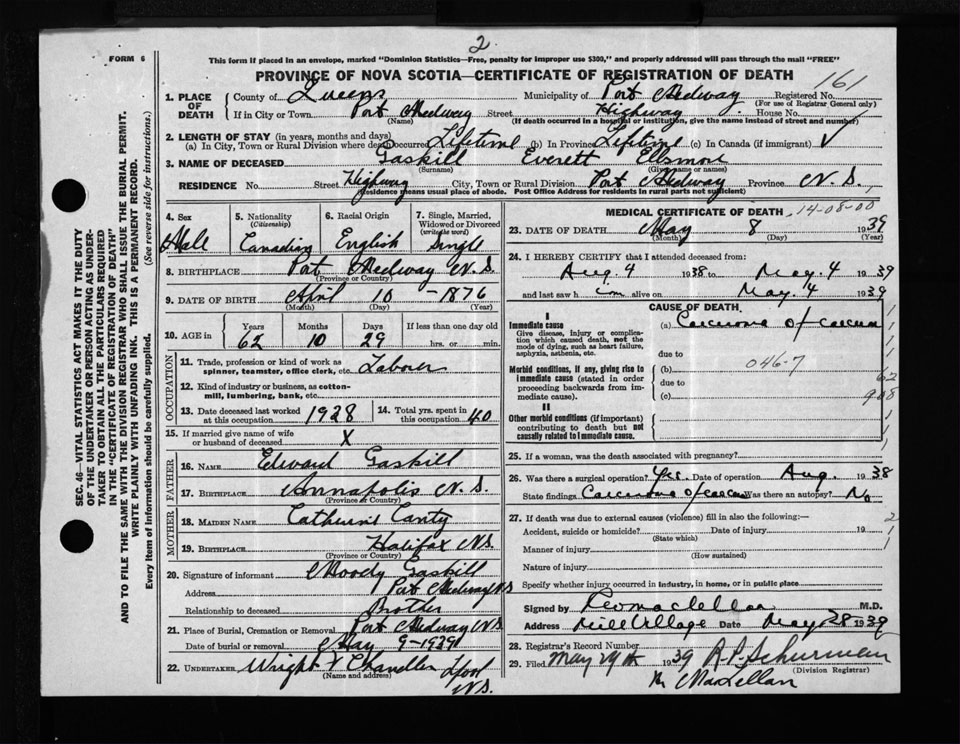 2
FORM 6
This form if placed in an envelope, marked "Dominion Statistics—Free, penalty for improper use $300," and properly addressed will pass through the mail "FREE"
PROVINCE OF NOVA SCOTIA—CERTIFICATE OF REGISTRATION OF DEATH
161
1. PLACE OF DEATH County of Queens Municipality of Port Medway Registered No.
(For use of Registrar General only)
If in City or Town Port Medway Street Highway House No.
(Name) (If death occurred in a hospital or institution, give the name instead of street and number)
2. LENGTH OF STAY (in years, months and days)
(a) In City, Town or Rural Division where death occurred Lifetime (b) In Province Lifetime (c) In Canada (if immigrant)
3. NAME OF DECEASED Gaskill Everett Ellsmore
(Surname) (Given name or names)
RESIDENCE No. Street Highway City, Town or Rural Division Port Medway Province N.S.
(Residence means usual place of abode. Post Office Address for residents in rural parts not sufficient)
4. Sex Male
5. Nationality (Citizenship) Canadian
6. Racial Origin English
7. Single, Married, Widowed or Divorced (write the word) Single
8. BIRTHPLACE Port Medway N.S.
(Province or Country)
9. DATE OF BIRTH April 10 - 1876
(Month) (Day) (Year)
10. AGE in Years Months Days If less than one day old
62 10 29 hrs. or min.
OCCUPATION
11. Trade, profession or kind of work as spinner, teamster, office clerk, etc. Laborer
12. Kind of industry or business, as cotton-mill, lumbering, bank, etc.
13. Date deceased last worked at this occupation 1928
14. Total yrs. spent in this occupation 40
15. If married give name of wife or husband of deceased X
FATHER
16. NAME Edward Gaskill
17. BIRTHPLACE Annapolis N.S.
(Province or Country)
MOTHER
18. MAIDEN NAME Catherine Canty
19. BIRTHPLACE Halifax N.S.
(Province or Country)
20. Signature of informant Moody Gaskill
Address Port Medway N.S
Relationship to deceased Brother
21. Place of Burial, Cremation or Removal Port Medway N.S
Date of burial or removal May 9-1939
22. UNDERTAKER Wright V Chandler Lpool N.S.
(Name and address)
MEDICAL CERTIFICATE OF DEATH
14-08-00
23. DATE OF DEATH May 8 1939
(Month) (Day) (Year)
24. I HEREBY CERTIFY that I attended deceased from:
Aug. 4 1938 to May. 4 1939
and last saw him alive on May. 4 1939
CAUSE OF DEATH
I
Immediate cause
Give disease, injury or complication which caused death, not the mode of dying, such as heart failure, asphyxia, asthenia, etc.
(a) Carcinoma of caecum
due to
Morbid conditions, if any, giving rise to immediate cause (stated in order proceeding backwards from immediate cause).
(b) 046-7
due to
(c)
62
908
II
Other morbid conditions (if important) contributing to death but not causally related to immediate cause.
25. If a woman, was the death associated with pregnancy?
26. Was there a surgical operation? Yes. Date of operation Aug. 1938
State findings Carcinoma of caecum Was there an autopsy? No
27. If death was due to external causes (violence) fill in also the following:—
Accident, suicide or homicide? Date of injury 19
(State which)
Manner of injury
(How sustained)
Nature of injury
Specify whether injury occurred in industry, in home, or in public place
Signed by M.D.
Address Mill Village Date May 28 1939
28. Registrar's Record Number
29. Filed May 29th 1939 R.P. Schurman
(Division Registrar)
MacLellan
SEC. 46—VITAL STATISTICS ACT MAKES IT THE DUTY
OF THE UNDERTAKER OR PERSON ACTING AS UNDER-
TAKER TO OBTAIN ALL THE PARTICULARS REQUIRED
IN THE "CERTIFICATE OF REGISTRATION OF DEATH"
AND TO FILE THE SAME WITH THE DIVISION REGISTRAR WHO SHALL ISSUE THE BURIAL PERMIT.
WRITE PLAINLY WITH UNFADING INK. THIS IS A PERMANENT RECORD.
Every item of information should be carefully supplied. (See reverse side for instructions.)